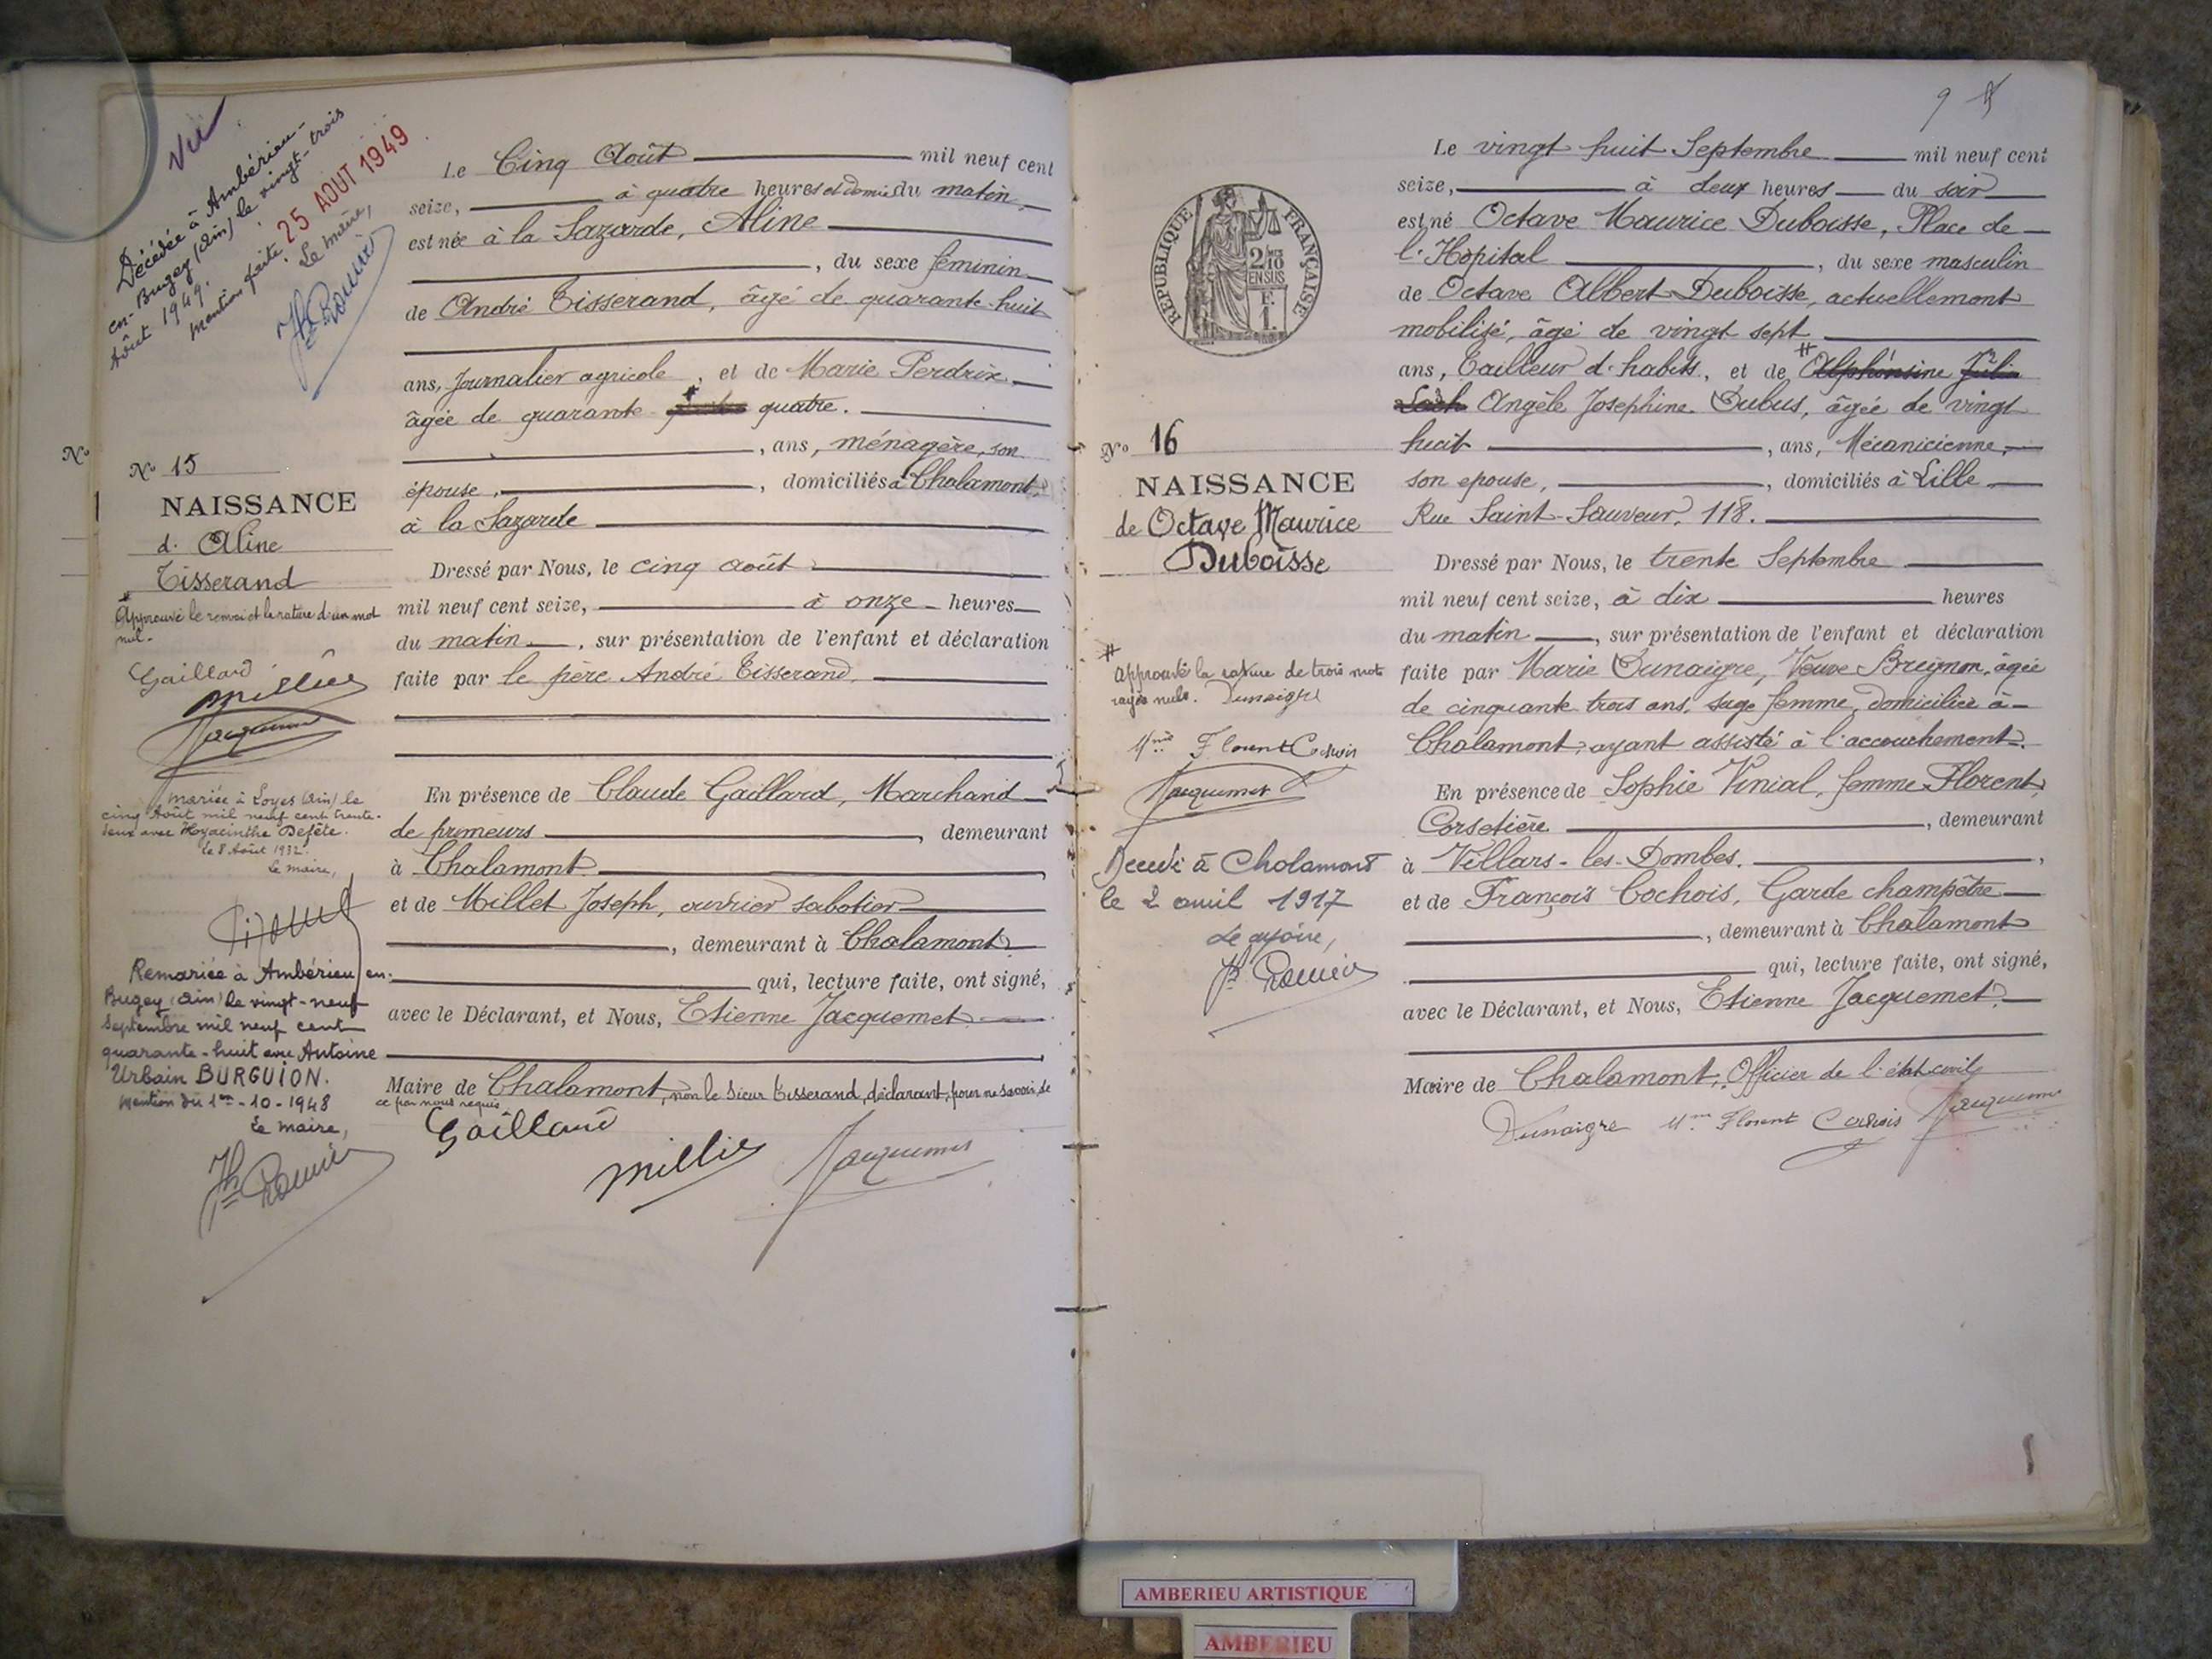 Vu
Décédée à Ambérieu-
en-Bugey (Ain) le vingt-trois
Août 1949.
Mention faite 25 AOUT 1949
Le maire,
Nº
Nº 15
NAISSANCE
d. Aline
Tisserand
Approuvé le renvoi et la rature d'un mot
nul.
Gaillard
Jacquemet
mariée à Loyes (Ain) le
cinq Août mil neuf cent trente-
deux avec Hyacinthe Defête.
Le 8 Août 1932.
Le maire,
Remariée à Ambérieu en-
Bugey (Ain) le vingt-neuf
Septembre mil neuf cent
quarante-huit avec Antoine
Urbain BURGUION.
Mention du 1er-10-1948
Le maire,
Le Cinq Août mil neuf cent
seize, à quatre heures et demie du matin,
est née à la Lazarde, Aline
, du sexe féminin
de André Tisserand, âgé de quarante-huit
ans, Journalier agricole, et de Marie Perdrix
âgée de quarante quatre.
, ans, ménagère, son
épouse, , domiciliés à Chalamont,
à la Lazarde
Dressé par Nous, le cinq août
mil neuf cent seize, à onze heures
du matin, sur présentation de l'enfant et déclaration
faite par le père André Tisserand,
En présence de Claude Gaillard, Marchand
de primeurs , demeurant
à Chalamont
et de Millet Joseph, ouvrier sabotier
, demeurant à Chalamont
qui, lecture faite, ont signé,
avec le Déclarant, et Nous, Etienne Jacquemet
Maire de Chalamont, non le Sieur Tisserand, déclarant, pour ne savoir, de
ce par nous requis
Gaillard
Jacquemet
9
REPUBLIQUE FRANÇAISE
2/10
EN SUS
Nº 16
NAISSANCE
de Octave Maurice
Duboisse
#
Approuvé la rature de trois mots
rayés nuls. Dunaigre
Mme Florent
Jacquemet
Décédé à Chalamont
le 2 avril 1917
Le 28 vingt huit Septembre mil neuf cent
seize, à deux heures du soir
est né Octave Maurice Duboisse, Place de
l'Hopital , du sexe masculin
de Octave Albert Duboisse, actuellement
mobilisé, âgé de vingt sept
ans, Tailleur d'habits, et de # Alphonsine
Angèle Josephine Dubus, âgée de vingt
huit , ans, Mécanicienne,
son epouse, , domiciliés à Lille
Rue Saint-Sauveur, 118.
Dressé par Nous, le trente Septembre
mil neuf cent seize, à dix heures
du matin, sur présentation de l'enfant et déclaration
faite par Marie Dunaigre, Veuve Breignon, âgée
de cinquante trois ans, sage femme, domiciliée à
Chalamont, ayant assisté à l'accouchement.
En présence de Sophie Vinial, femme Florent,
Corsetière , demeurant
à Villars-les-Dombes. ,
et de François Cochois, Garde champêtre
, demeurant à Chalamont
qui, lecture faite, ont signé,
avec le Déclarant, et Nous, Etienne Jacquemet
Maire de Chalamont, Officier de l'état civil
Dunaigre Mme Florent Cochois Jacquemet
AMBERIEU ARTISTIQUE
AMBERIEU